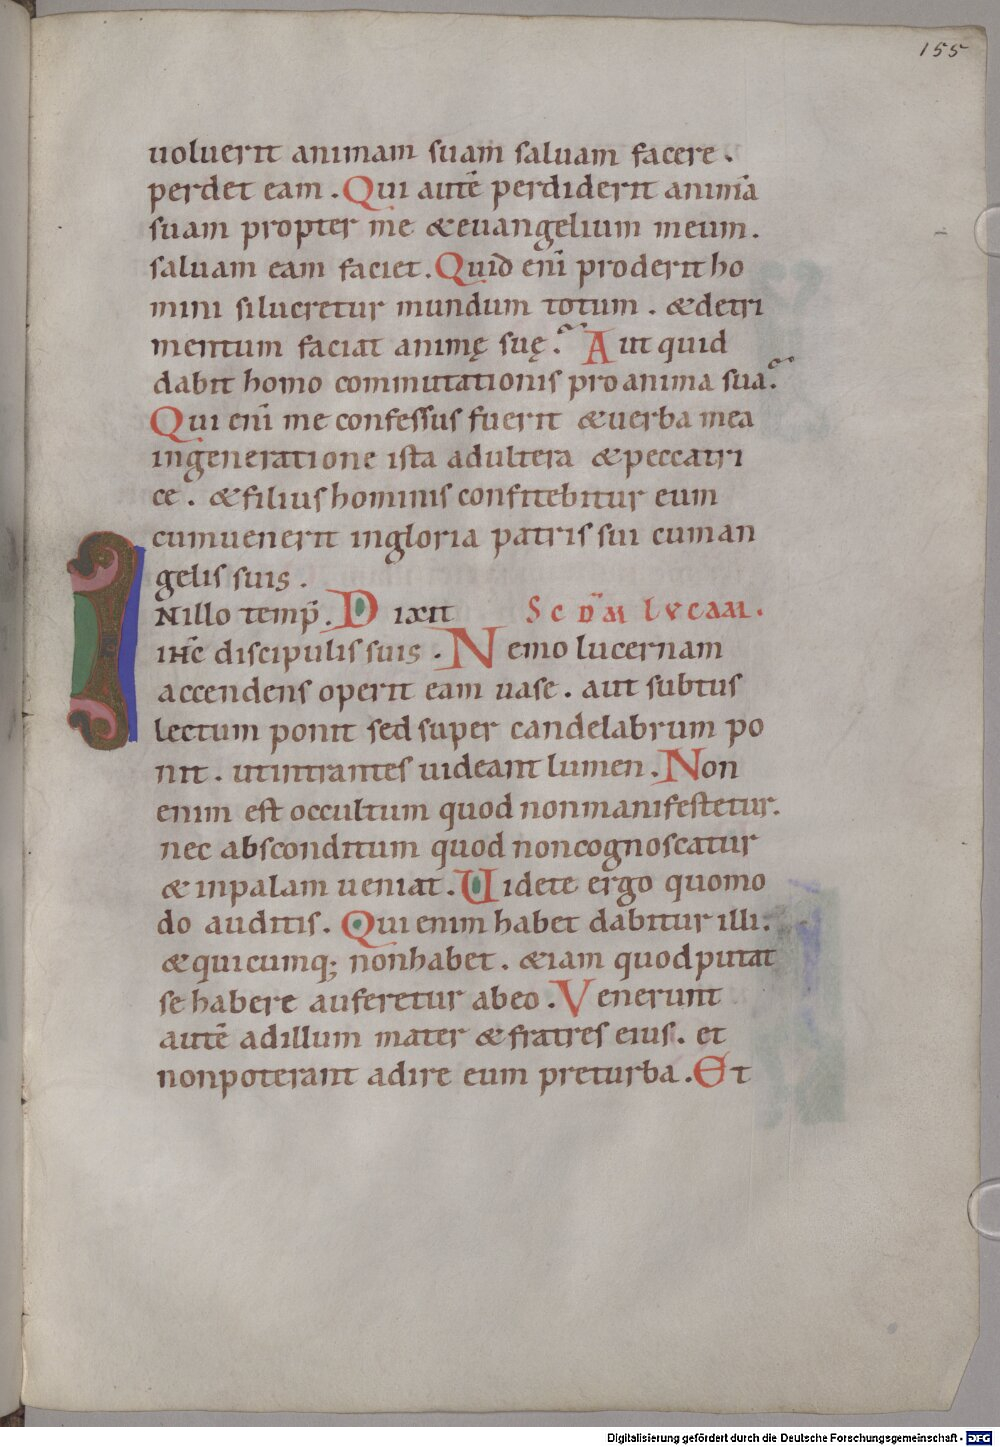 155
uoluerit animam suam saluam facere.
perdet eam. Qui autē perdiderit animā
suam propter me & euangelium meum.
saluam eam faciet. Quid eni̅ proderit ho
mini silucretur mundum totum. & detri
mentum faciat animę suę? Aut quid
dabit homo commutationis pro anima sua?
Qui eni̅ me confessus fuerit & uerba mea
in generatione ista adultera & peccatri
ce. & filius hominis confitebitur eum
cum uenerit in gloria patris sui cum an
gelis suis.
INillo temp̅. Dixit SCD̅M LVCAM.
ihc̅ discipulis suis. Nemo lucernam
accendens operit eam uase. aut subtus
lectum ponit sed super candelabrum po
nit. ut intrantes uideant lumen. Non
enim est occultum quod non manifestetur.
nec absconditum quod non cognoscatur
& in palam ueniat. Uidete ergo quomo
do auditis. Qui enim habet dabitur illi.
& quicumq; non habet. & iam quod putat
se habere auferetur ab eo. Venerunt
autē ad illum mater & fratres eius. et
non poterant adire eum pre turba. Et
Digitalisierung gefördert durch die Deutsche Forschungsgemeinschaft - DFG